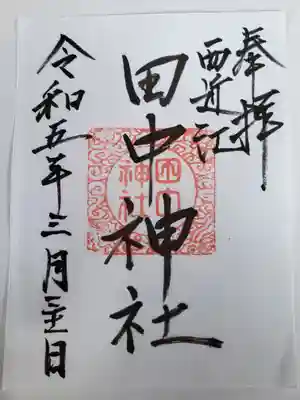 奉拝
西近江
田中神社
田中
神社
令和五年三月二十五日